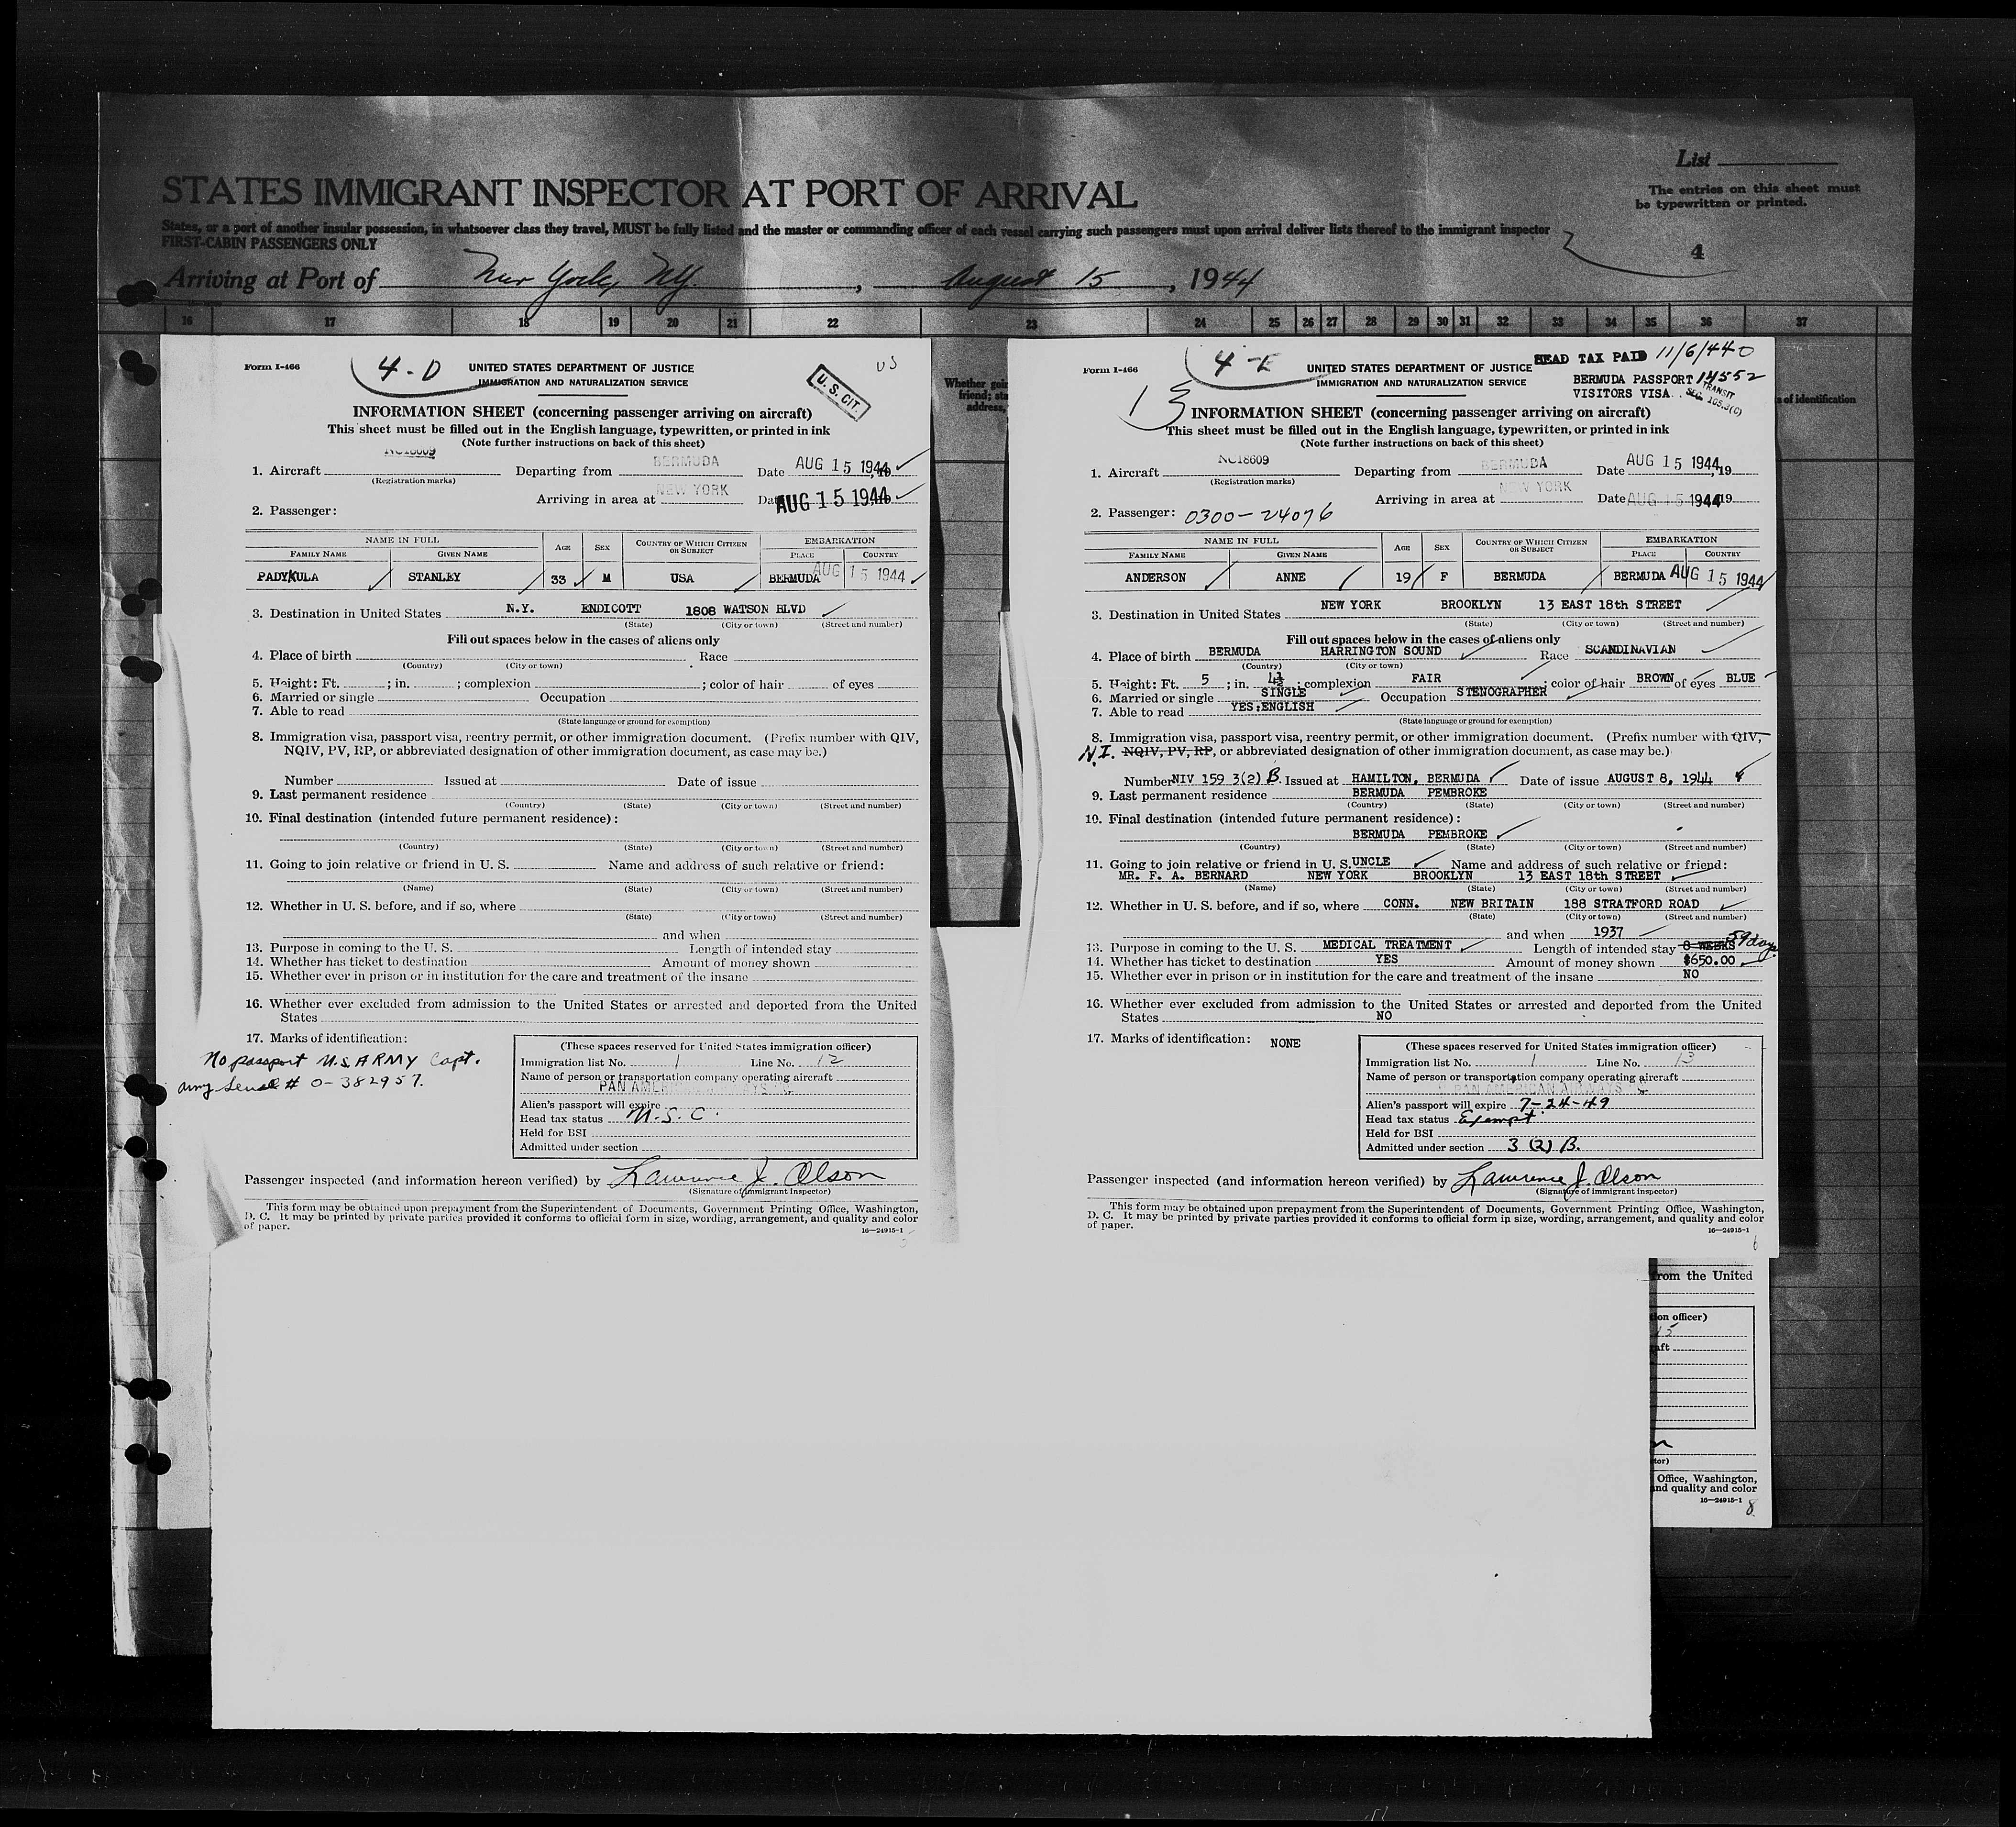 List
STATES IMMIGRANT INSPECTOR AT PORT OF ARRIVAL
The entries on this sheet must
be typewritten or printed.
States, or a port of another insular possession, in whatsoever class they travel, MUST be fully listed and the master or commanding officer of each vessel carrying such passengers must upon arrival deliver lists thereof to the immigrant inspector
FIRST-CABIN PASSENGERS ONLY
4
Arriving at Port of New York, NY. , August 15 , 1944
16 17 18 19 20 21 22 23 24 25 26 27 28 29 30 31 32 33 34 35 36 37
Form I-466
4-D
UNITED STATES DEPARTMENT OF JUSTICE
US
IMMIGRATION AND NATURALIZATION SERVICE
U. S. CIT.
INFORMATION SHEET (concerning passenger arriving on aircraft)
This sheet must be filled out in the English language, typewritten, or printed in ink
(Note further instructions on back of this sheet)
1. Aircraft NC18609 Departing from BERMUDA Date AUG 15 1944
(Registration marks)
Arriving in area at NEW YORK Date AUG 15 1944
2. Passenger:
NAME IN FULL AGE SEX COUNTRY OF WHICH CITIZEN OR SUBJECT EMBARKATION
FAMILY NAME GIVEN NAME PLACE COUNTRY
PADYKULA STANLEY 33 M USA BERMUDA AUG 15 1944
3. Destination in United States N.Y. ENDICOTT 1808 WATSON BLVD
(State) (City or town) (Street and number)
Fill out spaces below in the cases of aliens only
4. Place of birth Race
(Country) (City or town)
5. Height: Ft. ; in. ; complexion ; color of hair of eyes
6. Married or single Occupation
7. Able to read
(State language or ground for exemption)
8. Immigration visa, passport visa, reentry permit, or other immigration document. (Prefix number with QIV,
NQIV, PV, RP, or abbreviated designation of other immigration document, as case may be.)
Number Issued at Date of issue
9. Last permanent residence
(Country) (State) (City or town) (Street and number)
10. Final destination (intended future permanent residence):
(Country) (State) (City or town) (Street and number)
11. Going to join relative or friend in U. S. Name and address of such relative or friend:
(Name) (State) (City or town) (Street and number)
12. Whether in U. S. before, and if so, where
(State) (City or town) (Street and number)
and when
13. Purpose in coming to the U. S. Length of intended stay
14. Whether has ticket to destination Amount of money shown
15. Whether ever in prison or in institution for the care and treatment of the insane
16. Whether ever excluded from admission to the United States or arrested and deported from the United
States
17. Marks of identification:
No passport U.S ARMY Capt.
Army Serial # O-382957.
(These spaces reserved for United States immigration officer)
Immigration list No. 1 Line No. 12
Name of person or transportation company operating aircraft
PAN AMERICAN AIRWAYS
Alien's passport will expire
Head tax status U.S.C.
Held for BSI
Admitted under section
Passenger inspected (and information hereon verified) by Lawrence J. Olson
(Signature of immigrant inspector)
This form may be obtained upon prepayment from the Superintendent of Documents, Government Printing Office, Washington,
D. C. It may be printed by private parties provided it conforms to official form in size, wording, arrangement, and quality and color
of paper.
16—24915-1
Whether goin
friend; sta
address,
s of identification
Form I-466
4-E
13
UNITED STATES DEPARTMENT OF JUSTICE
HEAD TAX PAID 11/6/44
IMMIGRATION AND NATURALIZATION SERVICE
BERMUDA PASSPORT 14552
VISITORS VISA
TRANSIT
SEC. 105.3(C)
INFORMATION SHEET (concerning passenger arriving on aircraft)
This sheet must be filled out in the English language, typewritten, or printed in ink
(Note further instructions on back of this sheet)
1. Aircraft NC18609 Departing from BERMUDA Date AUG 15 1944, 19
(Registration marks)
Arriving in area at NEW YORK Date AUG 15 1944 19
2. Passenger: 0300-24076
NAME IN FULL AGE SEX COUNTRY OF WHICH CITIZEN OR SUBJECT EMBARKATION
FAMILY NAME GIVEN NAME PLACE COUNTRY
ANDERSON ANNE 19 F BERMUDA BERMUDA AUG 15 1944
3. Destination in United States NEW YORK BROOKLYN 13 EAST 18th STREET
(State) (City or town) (Street and number)
Fill out spaces below in the cases of aliens only
4. Place of birth BERMUDA HARRINGTON SOUND Race SCANDINAVIAN
(Country) (City or town)
5. Height: Ft. 5 ; in. 4½ ; complexion FAIR ; color of hair BROWN of eyes BLUE
6. Married or single SINGLE Occupation STENOGRAPHER
7. Able to read YES:ENGLISH
(State language or ground for exemption)
8. Immigration visa, passport visa, reentry permit, or other immigration document. (Prefix number with QIV,
N.I. NQIV, PV, RP, or abbreviated designation of other immigration document, as case may be.)
Number NIV 159 3(2) B. Issued at HAMILTON, BERMUDA Date of issue AUGUST 8, 1944
9. Last permanent residence BERMUDA PEMBROKE
(Country) (State) (City or town) (Street and number)
10. Final destination (intended future permanent residence):
BERMUDA PEMBROKE
(Country) (State) (City or town) (Street and number)
11. Going to join relative or friend in U. S. UNCLE Name and address of such relative or friend:
MR. F. A. BERNARD NEW YORK BROOKLYN 13 EAST 18th STREET
(Name) (State) (City or town) (Street and number)
12. Whether in U. S. before, and if so, where CONN. NEW BRITAIN 188 STRATFORD ROAD
(State) (City or town) (Street and number)
and when 1937
13. Purpose in coming to the U. S. MEDICAL TREATMENT Length of intended stay 8 WEEKS 59 days
14. Whether has ticket to destination YES Amount of money shown $650.00
15. Whether ever in prison or in institution for the care and treatment of the insane NO
16. Whether ever excluded from admission to the United States or arrested and deported from the United
States NO
17. Marks of identification: NONE
(These spaces reserved for United States immigration officer)
Immigration list No. 1 Line No. 13
Name of person or transportation company operating aircraft
PAN AMERICAN AIRWAYS
Alien's passport will expire 7-24-49
Head tax status Exempt
Held for BSI
Admitted under section 3 (2) B.
Passenger inspected (and information hereon verified) by Lawrence J. Olson
(Signature of immigrant inspector)
This form may be obtained upon prepayment from the Superintendent of Documents, Government Printing Office, Washington,
D. C. It may be printed by private parties provided it conforms to official form in size, wording, arrangement, and quality and color
of paper.
16—24915-1
6
from the United
ion officer)
15
aft
tor)
Office, Washington,
and quality and color
16—24915-1
8